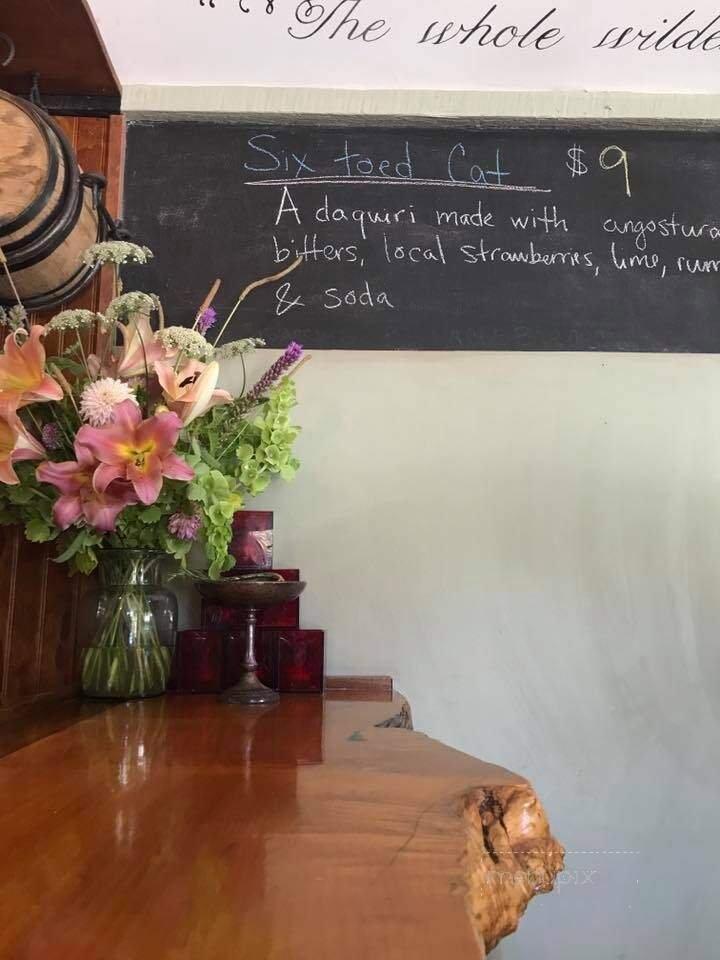 The whole wilde
Six toed Cat $9
A daquiri made with angostura
bitters, local strawberries, lime, rum
& soda
menupix